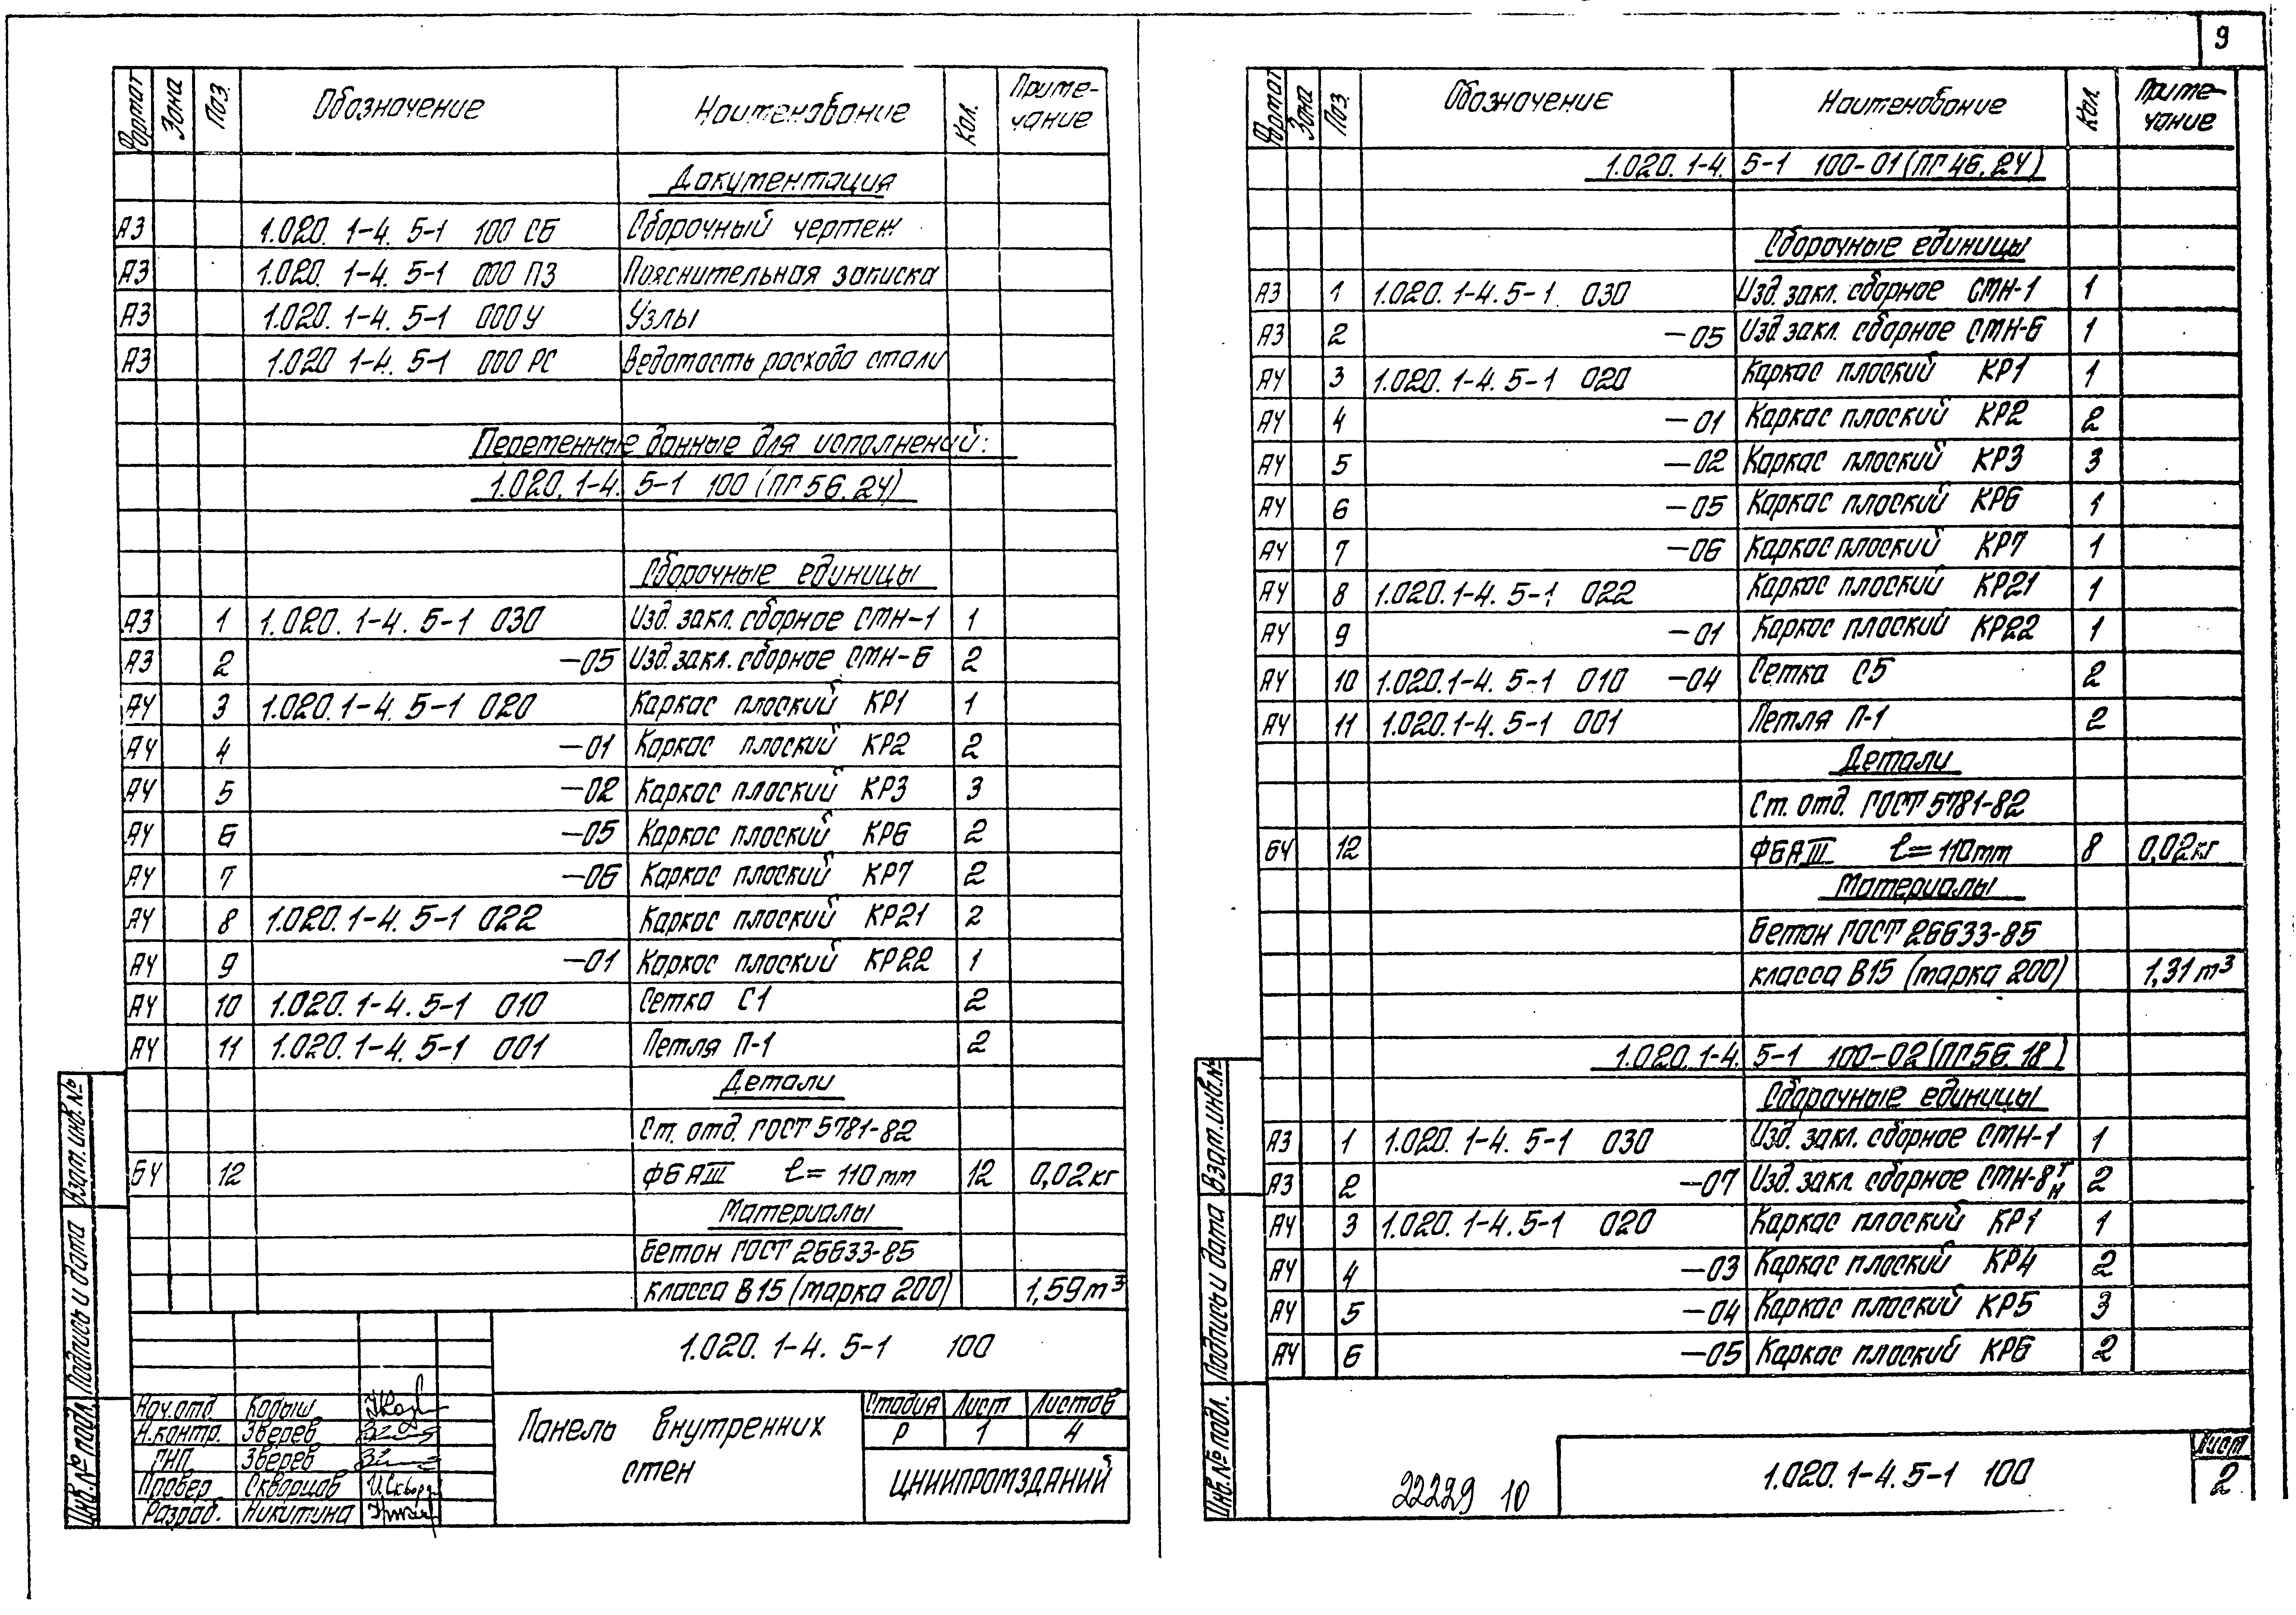 Формат Зона Поз. Обозначение Наименование Кол. Примечание
Документация
А3 1.020. 1-4. 5-1 100 СБ Сборочный чертеж
А3 1.020. 1-4. 5-1 000 ПЗ Пояснительная записка
А3 1.020. 1-4. 5-1 000 У Узлы
А3 1.020 1-4. 5-1 000 РС Ведомость расхода стали
Переменные данные для исполнений:
1.020. 1-4. 5-1 100 (ПГ 56.24)
Сборочные единицы
А3 1 1.020. 1-4. 5-1 030 Изд. закл. сборное СМН-1 1
А3 2 -05 Изд. закл. сборное СМН-6 2
А4 3 1.020. 1-4. 5-1 020 Каркас плоский КР1 1
А4 4 -01 Каркас плоский КР2 2
А4 5 -02 Каркас плоский КР3 3
А4 6 -05 Каркас плоский КР6 2
А4 7 -06 Каркас плоский КР7 2
А4 8 1.020. 1-4. 5-1 022 Каркас плоский КР21 2
А4 9 -01 Каркас плоский КР22 1
А4 10 1.020. 1-4. 5-1 010 Сетка С1 2
А4 11 1.020. 1-4. 5-1 001 Петля П-1 2
Детали
Ст. отд. ГОСТ 5781-82
БЧ 12 Ф6 АIII ℓ= 110 мм 12 0,02 кг
Материалы
Бетон ГОСТ 26633-85
класса В15 (марка 200) 1,59 м³
1.020. 1-4. 5-1 100
Нач. отд. Кодыш
Н. контр. Зверев
ГИП Зверев
Провер. Скворцов
Разраб. Никитина
Панель внутренних
стен
Стадия Лист Листов
Р 1 4
ЦНИИПРОМЗДАНИЙ
Инв. № подл. Подпись и дата Взам. инв. №
9
Формат Зона Поз. Обозначение Наименование Кол. Примечание
1.020. 1-4. 5-1 100-01 (ПГ 46.24)
Сборочные единицы
А3 1 1.020. 1-4. 5-1 030 Изд. закл. сборное СМН-1 1
А3 2 -05 Изд. закл. сборное СМН-6 1
А4 3 1.020. 1-4. 5-1 020 Каркас плоский КР1 1
А4 4 -01 Каркас плоский КР2 2
А4 5 -02 Каркас плоский КР3 3
А4 6 -05 Каркас плоский КР6 1
А4 7 -06 Каркас плоский КР7 1
А4 8 1.020. 1-4. 5-1 022 Каркас плоский КР21 1
А4 9 -01 Каркас плоский КР22 1
А4 10 1.020. 1-4. 5-1 010 -04 Сетка С5 2
А4 11 1.020. 1-4. 5-1 001 Петля П-1 2
Детали
Ст. отд. ГОСТ 5781-82
БЧ 12 Ф6 АIII ℓ= 110 мм 8 0,02 кг
Материалы
Бетон ГОСТ 26633-85
класса В15 (марка 200) 1,31 м³
1.020. 1-4. 5-1 100-02 (ПГ 56.18)
Сборочные единицы
А3 1 1.020. 1-4. 5-1 030 Изд. закл. сборное СМН-1 1
А3 2 -07 Изд. закл. сборное СМН-8 т н 2
А4 3 1.020. 1-4. 5-1 020 Каркас плоский КР1 1
А4 4 -03 Каркас плоский КР4 2
А4 5 -04 Каркас плоский КР5 3
А4 6 -05 Каркас плоский КР6 2
Инв. № подл. Подпись и дата Взам. инв. №
22229 10
1.020. 1-4. 5-1 100
Лист
2